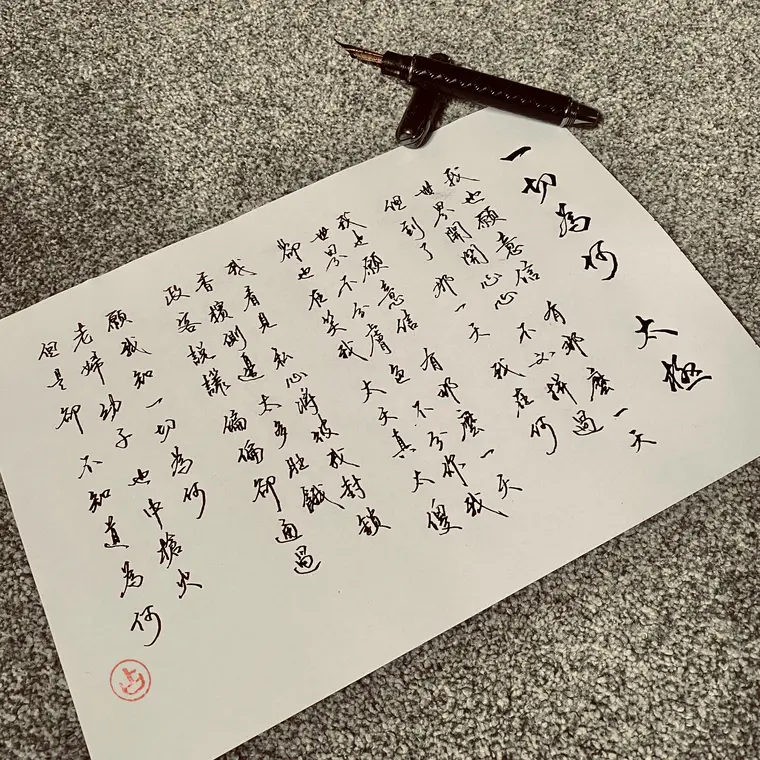 一切為何 太極
我也願意信 有那麼一天
世界開開心心 不必拼過
但到了那一天 我在何
我也願意信 有那麼一天
世界不分膚色 不分你我
卻也在笑我 太天真 太傻
我看見私心將被我封鎖
看橫側邊太多肚餓
政客説謊偏偏卻通過
願我知一切為何
老婦幼子也中槍火
但是卻不知道為何